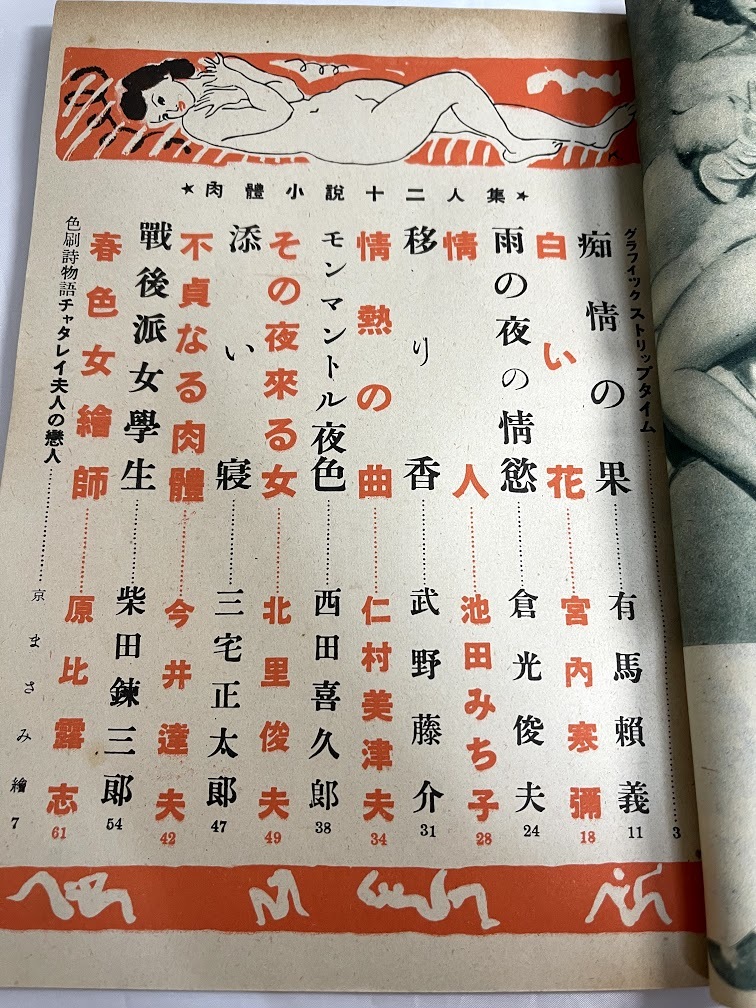 ★肉體小說十二人集★
グラフイック ストリップタイム……3
痴情の果……有馬賴義 11
白い花……宮內寒彌 18
雨の夜の情慾……倉光俊夫 24
情人……池田みち子 28
移り香……武野藤介 31
情熱の曲……仁村美津夫 34
モンマントル夜色……西田喜久郎 38
その夜來る女……北里俊夫 49
添い寢……三宅正太郎 47
不貞なる肉體……今井達夫 42
戰後派女學生……柴田鍊三郎 54
春色女繪師……原比露志 61
色刷詩物語 チャタレイ夫人の戀人……京まさみ繪 7